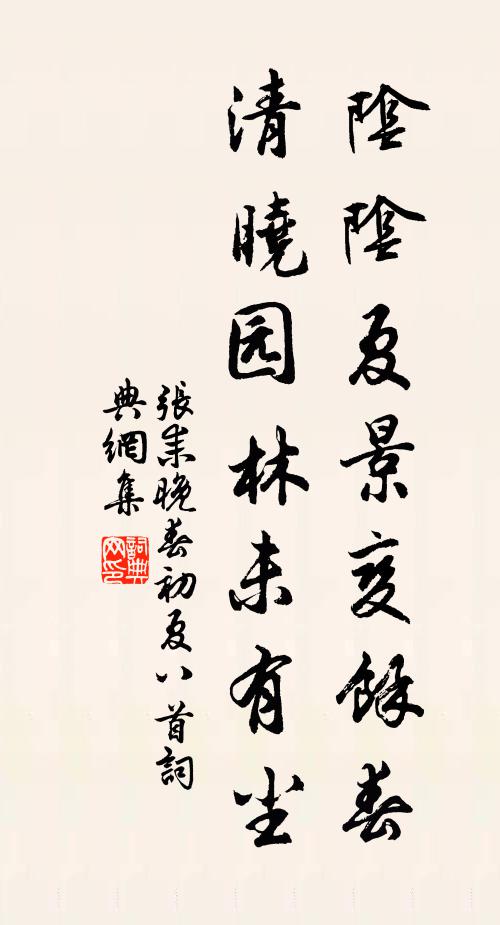 陰陰夏景变餘春
清曉园林未有尘
張耒晚春初夏八首詞
典網集
詞典
网印